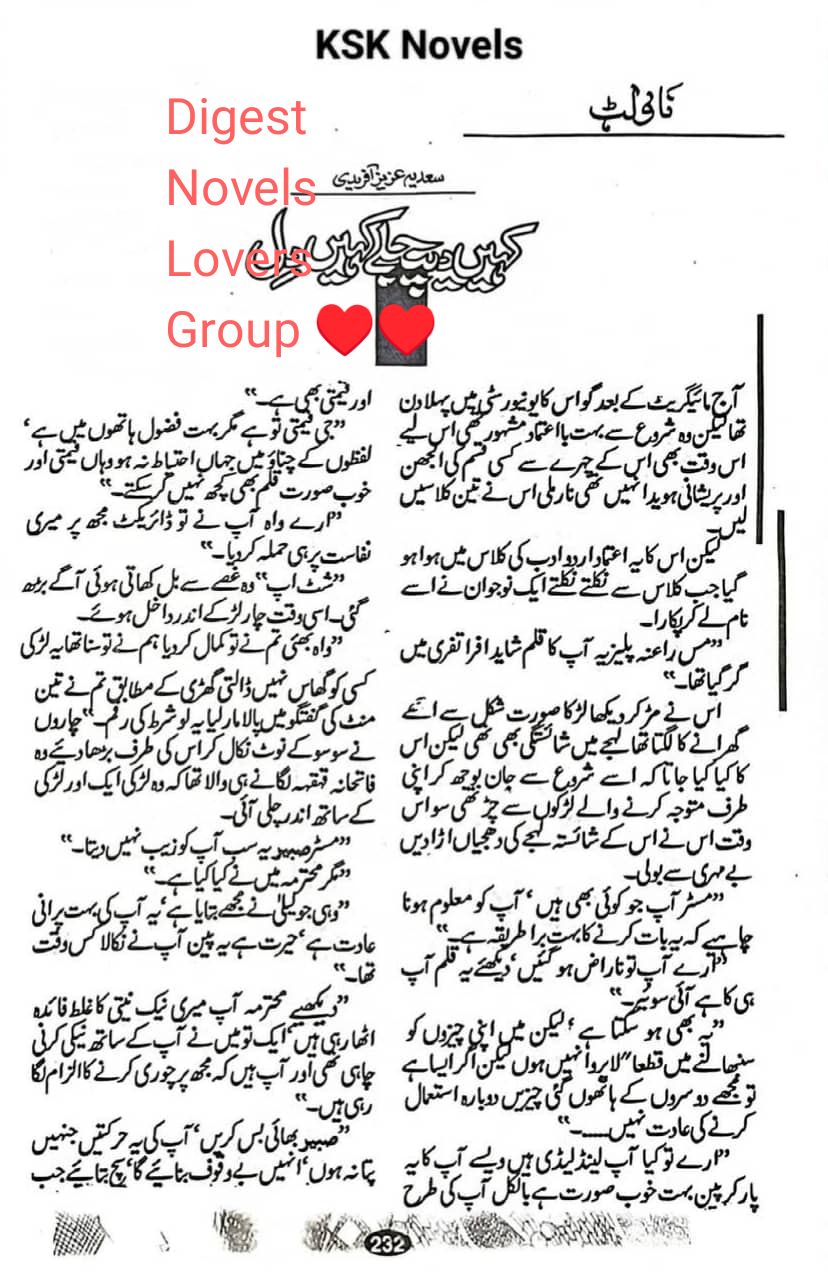 KSK Novels
ناولٹ
Digest
Novels
Lovers
Group ♥♥
سعدیہ عزیز آفریدی
کہیں دیپ جلے کہیں دل
آج مائیگریٹ کے بعد گو اس کا یونیورسٹی میں پہلا دن
تھا لیکن وہ شروع سے بہت بااعتماد مشہور تھی اس لیے
اس وقت بھی اس کے چہرے سے کسی قسم کی الجھن
اور پریشانی ہویدا نہیں تھی نارملی اس نے تین کلاسیں
لیں۔
لیکن اس کا یہ اعتماد اردو ادب کی کلاس میں ہوا ہو
گیا جب کلاس سے نکلتے نکلتے ایک نوجوان نے اسے
نام لے کر پکارا۔
”مس راعنہ پلیز یہ آپ کا قلم شاید افراتفری میں
گر گیا تھا۔“
اس نے مڑ کر دیکھا لڑکا صورت شکل سے اچھے
گھرانے کا لگتا تھا لہجے میں شائستگی بھی تھی لیکن اس
کا کیا کیا جاتا کہ اسے شروع سے جان بوجھ کر اپنی
طرف متوجہ کرنے والے لڑکوں سے چڑ تھی سو اس
وقت اس نے اس کے شائستہ لہجے کی دھجیاں اڑا دیں
بے مہری سے بولی۔
”مسٹر آپ جو کوئی بھی ہیں‘ آپ کو معلوم ہونا
چاہیے کہ یہ بات کرنے کا بہت برا طریقہ ہے۔“
”ارے آپ تو ناراض ہو گئیں‘ دیکھئے یہ قلم آپ
ہی کا ہے آئی سوئیر۔“
”یہ بھی ہو سکتا ہے‘ لیکن میں اپنی چیزوں کو
سنبھالنے میں قطعا“ لاپروا نہیں ہوں لیکن اگر ایسا ہے
تو مجھے دوسروں کے ہاتھوں گئی چیزیں دوبارہ استعمال
کرنے کی عادت نہیں.....۔“
”ارے تو کیا آپ لینڈ لیڈی ہیں ویسے آپ کا یہ
پارکر پین بہت خوب صورت ہے بالکل آپ کی طرح
اور قیمتی بھی ہے۔“
”جی قیمتی تو ہے مگر بہت فضول ہاتھوں میں ہے‘
لفظوں کے چناؤ میں جہاں احتیاط نہ ہو وہاں قیمتی اور
خوب صورت قلم بھی کچھ نہیں کر سکتے۔“
”ارے واہ آپ نے تو ڈائریکٹ مجھ پر میری
نفاست پر ہی حملہ کر دیا۔“
”شٹ اپ“ وہ غصے سے بل کھاتی ہوئی آگے بڑھ
گئی۔ اسی وقت چار لڑکے اندر داخل ہوئے۔
”واہ بھئی تم نے تو کمال کر دیا ہم نے تو سنا تھا یہ لڑکی
کسی کو گھاس نہیں ڈالتی گھڑی کے مطابق تم نے تین
منٹ کی گفتگو میں پالا مار لیا یہ لو شرط کی رقم۔“ چاروں
نے سو سو کے نوٹ نکال کر اس کی طرف بڑھا دیئے وہ
فاتحانہ قہقہہ لگانے ہی والا تھا کہ وہ لڑکی ایک اور لڑکی
کے ساتھ اندر چلی آئی۔
”مسٹر صبیر یہ سب آپ کو زیب نہیں دیتا۔“
”مگر محترمہ میں نے کیا کیا ہے۔“
”وہی جو لیلیٰ نے مجھے بتایا ہے‘ یہ آپ کی بہت پرانی
عادت ہے‘ حیرت ہے یہ پین آپ نے نکالا کس وقت
تھا۔“
”دیکھیے محترمہ آپ میری نیک نیتی کا غلط فائدہ
اٹھا رہی ہیں‘ ایک تو میں نے آپ کے ساتھ نیکی کرنی
چاہی تھی اور آپ ہیں کہ مجھ پر چوری کرنے کا الزام لگا
رہی ہیں۔“
”صبیر بھائی بس کریں‘ آپ کی یہ حرکتیں جنہیں
پتا نہ ہوں‘ انہیں بے وقوف بنائیے گا‘ سچ بتائیے جب
232